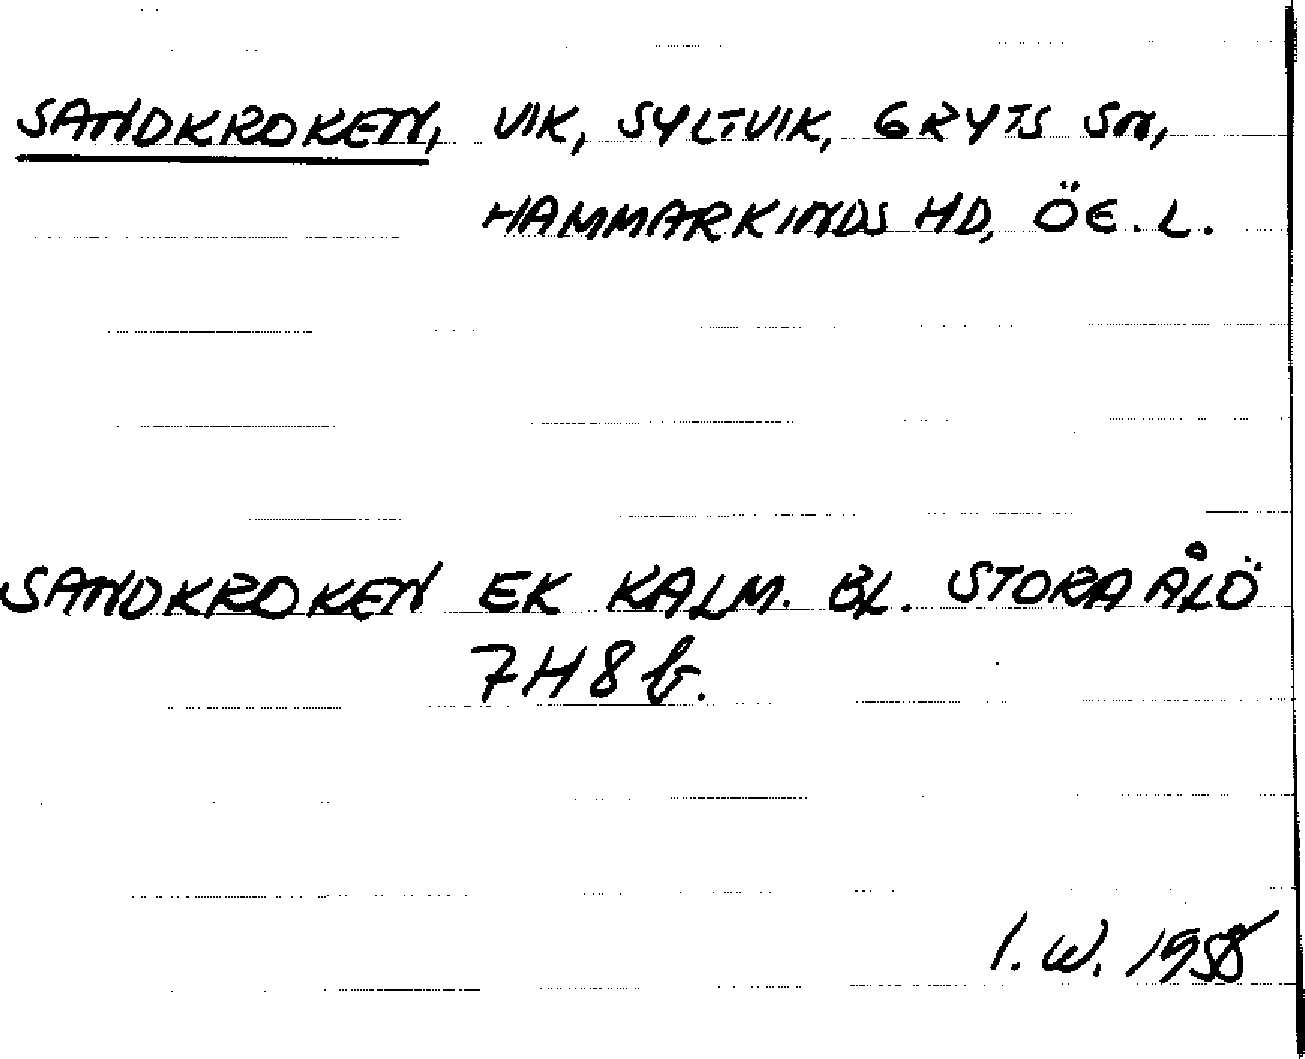 SANDKROKEN, VIK, SYLTVIK, GRYTS SN,
HAMMARKINDS HD, ÖE. L.
SANDKROKEN EK KALM. BL. STORA ÅLÖ
7H8b.
I. W. 1958